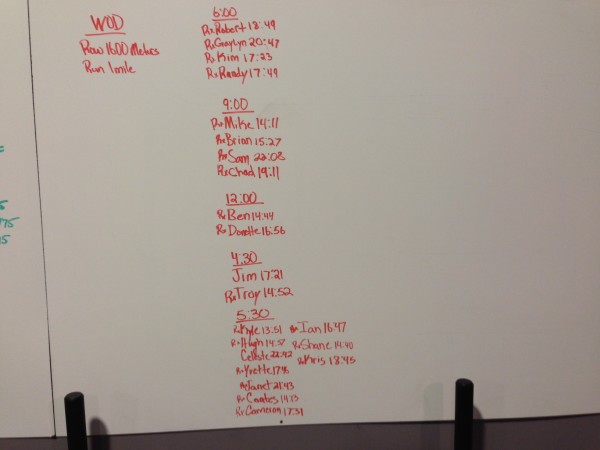 WOD
Row 1600 Meters
Run 1 mile
6:00
Rx Robert 18:49
Rx Gaylyn 20:47
Rx Kim 17:23
Rx Randy 17:49
9:00
Rx Mike 14:11
Rx Brian 15:27
Rx Sam 22:08
Rx Chad 19:11
12:00
Rx Ben 14:44
Rx Donette 16:56
4:30
Jim 17:21
Rx Troy 14:52
5:30
Rx Kyle 13:51
Rx Hugh 14:57
Celeste 22:42
Rx Yvette
Janet 21:43
Rx Coates 14:13
Rx Cameron 17:31
Rx Ian 16:47
Rx Shane 14:40
Rx Khris 18:45